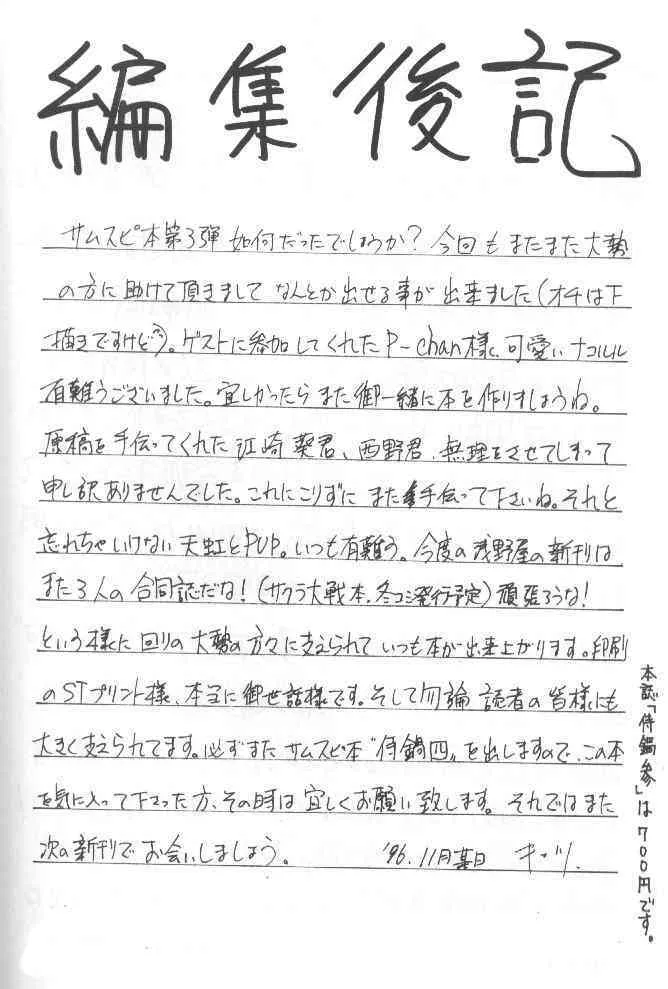 編集後記
サムスピ本第3弾 如何だったでしょうか? 今回もまたまた大勢
の方に助けて頂きまして なんとか出せる事が出来ました(オチは下
描きですけど)。ゲストに参加してくれた P-chan様、可愛い ナコルル
有難うございました。宜しかったら また御一緒に本を作りましょうね。
原稿を手伝ってくれた 江崎 葵君、西野君、無理をさせてしまって
申し訳ありませんでした。これにこりずに また手伝って下さいね。それと
忘れちゃいけない 天虹とPUP。いつも有難う。今度の浅野屋の新刊は
また3人の合同誌だな!(サクラ大戦本、冬コミ発行予定)頑張ろうな!
という様に 回りの大勢の方々に支えられて いつも本が出来上がります。印刷
のSTプリント様、本当に御世話様です。そして勿論 読者の皆様にも
大きく支えられてます。必ずまた サムスピ本“侍鍋四〟を出しますので、この本
を気に入って下さった方、その時は 宜しくお願い致します。それではまた
次の新刊で お会いしましょう。 '96.11月某日 キッツ.
本誌「侍鍋参」は700円です。